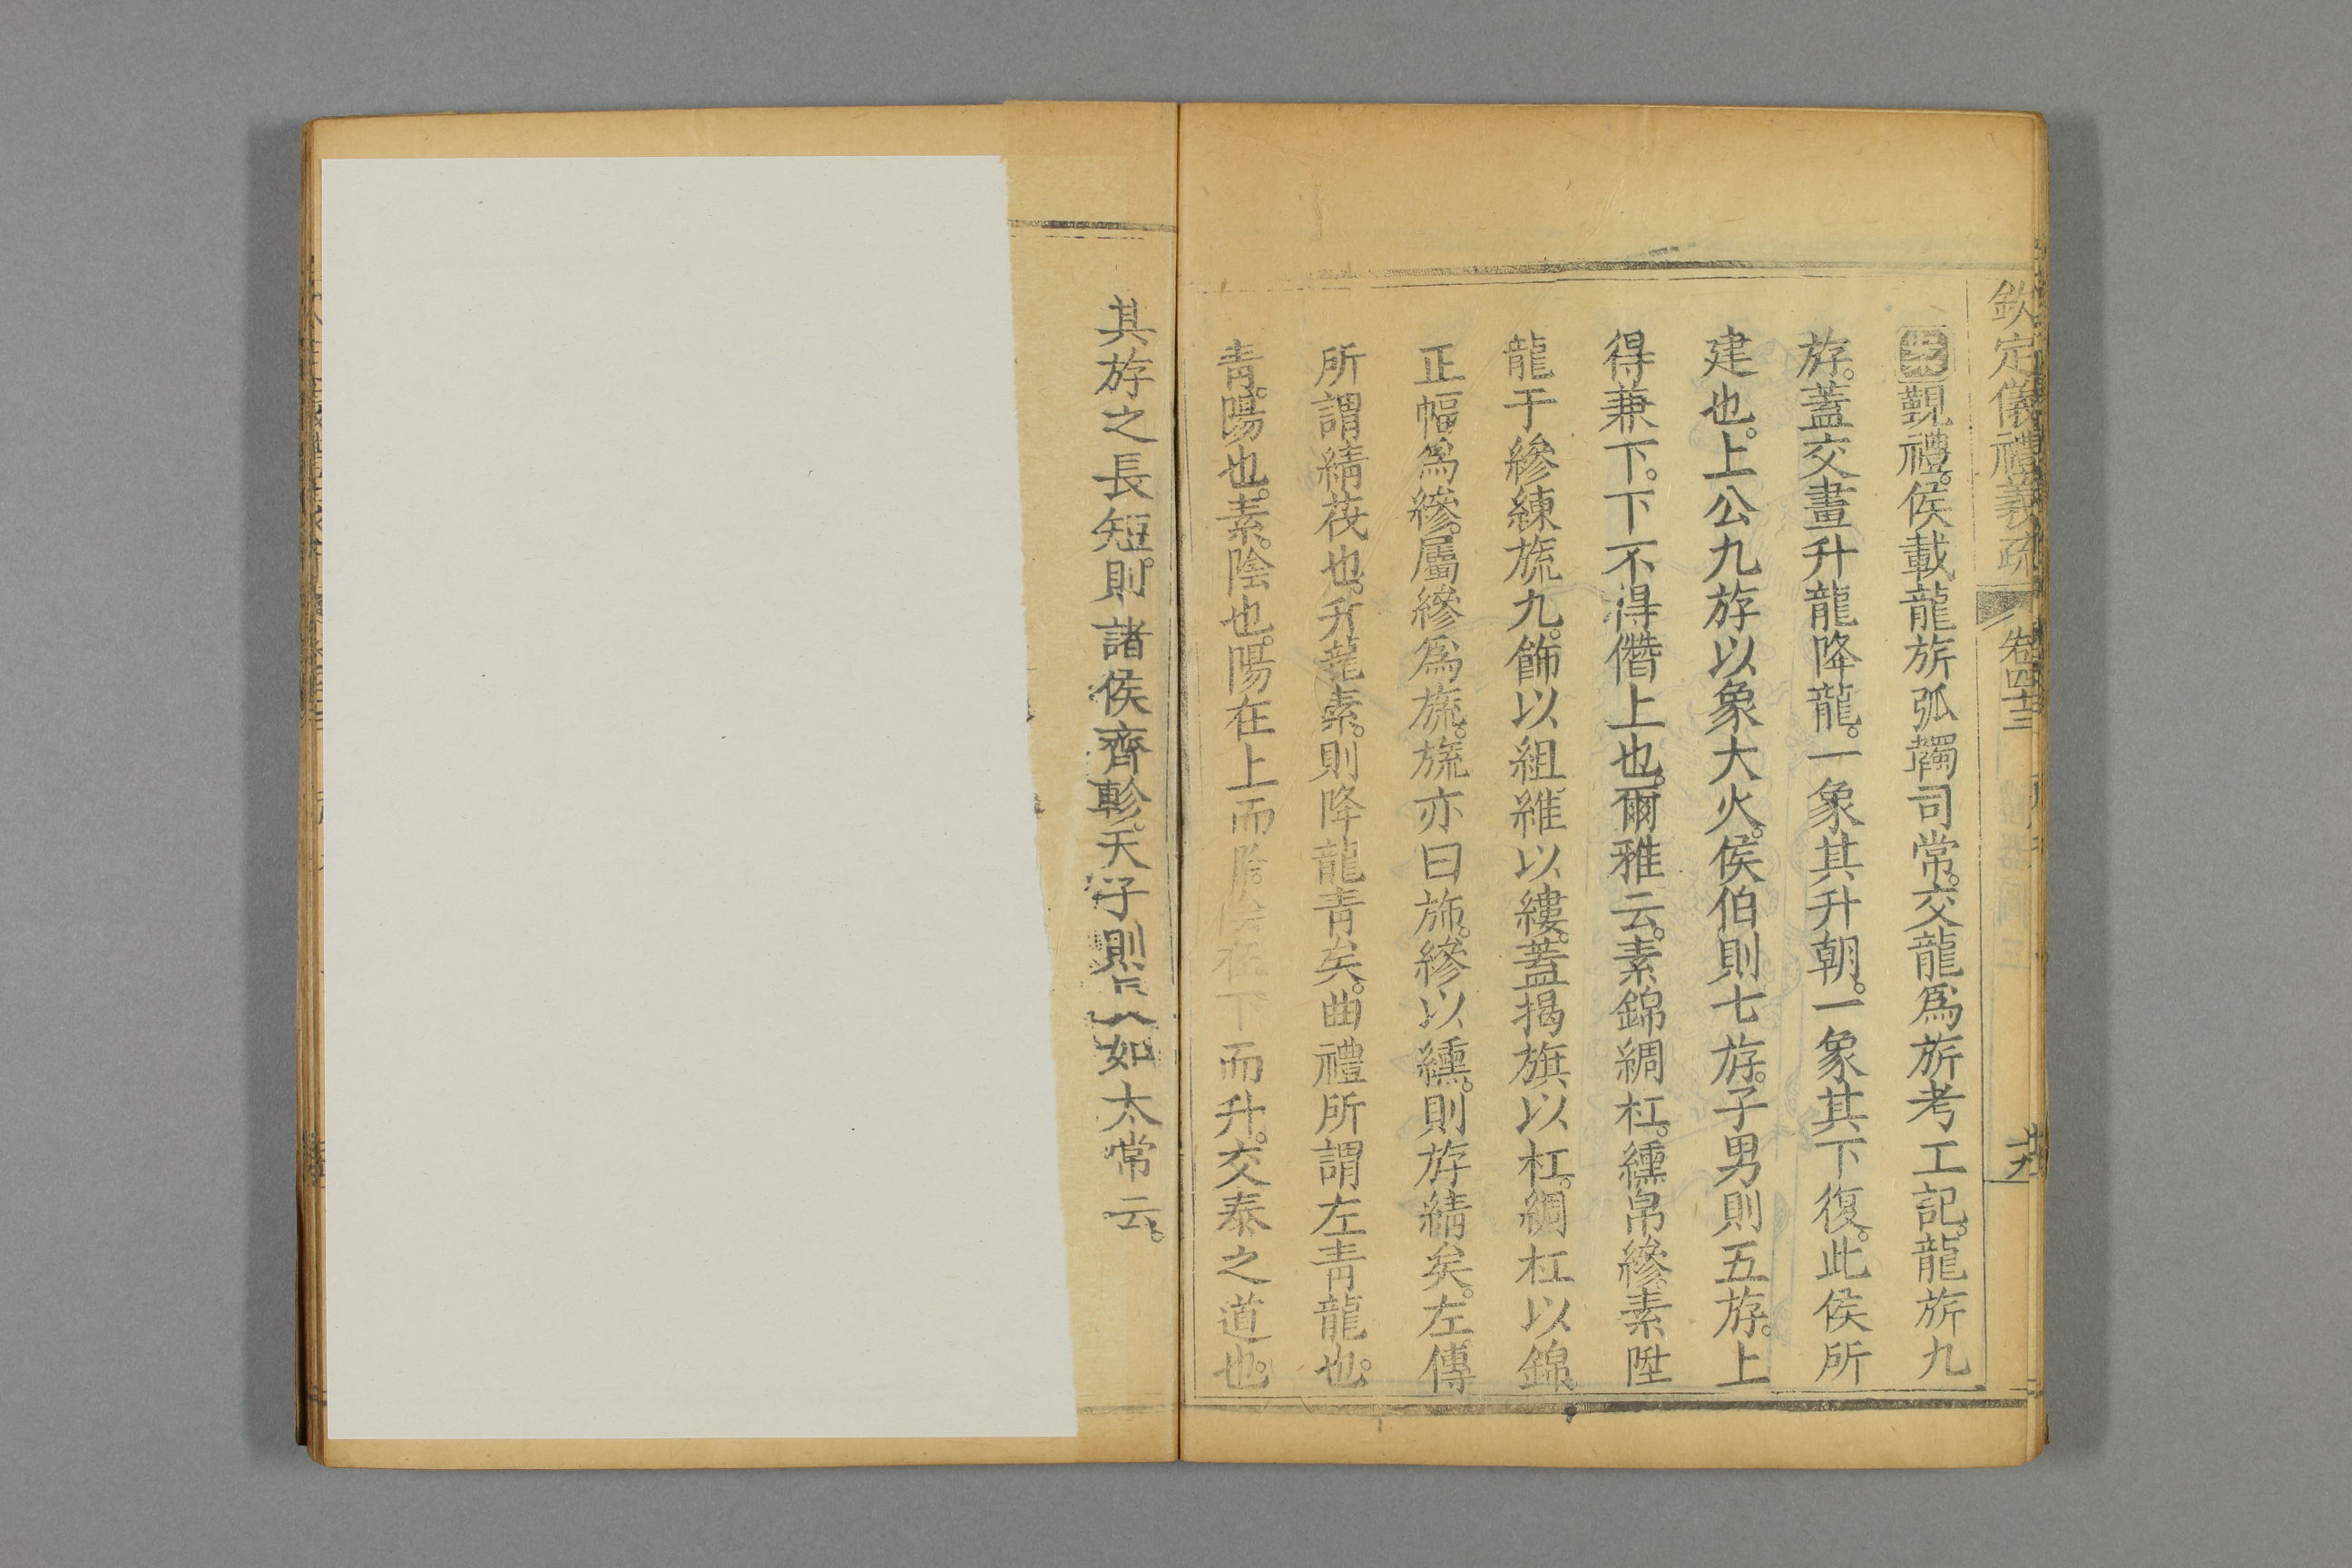 欽定儀禮義疏 卷四十三
覲禮。侯載龍旂弧韣司常。交龍爲旂考工記。龍旂九
斿。蓋交畫升龍降龍。一象其升朝。一象其下復。此侯所
建也。上公九斿以象大火。侯伯則七斿。子男則五斿。上
得兼下。下不得僭上也。爾雅云。素錦綢杠。纁帛縿。素陞
龍于縿練旒九。飾以組維以縷。蓋揭旗以杠。綢杠以錦。
正幅爲縿。屬縿爲旒。旒亦曰斾。縿以纁。則斿綪矣。左傳
所謂綪茷也。升龍素。則降龍青矣。曲禮所謂左青龍也。
青。陽也。素。陰也。陽在上而降。陰在下而升。交泰之道也。
其斿之長短。則諸侯齊軫。天子則 如太常云。